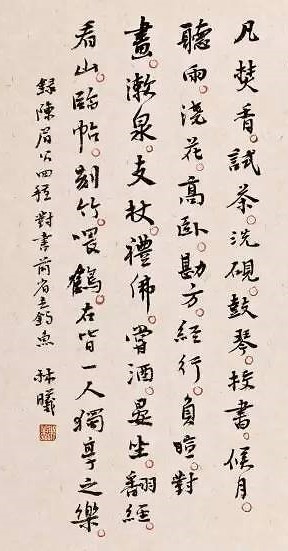 凡焚香。試茶。洗硯。鼓琴。校書。候月。
聽雨。澆花。高臥。勘方。經行。負暄。對
畫。漱泉。支杖。禮佛。嘗酒。晏坐。翻經。
看山。臨帖。刻竹。喂鶴。右皆一人獨享之樂。
錄陳眉公四種對畫前省去釣魚 林曦